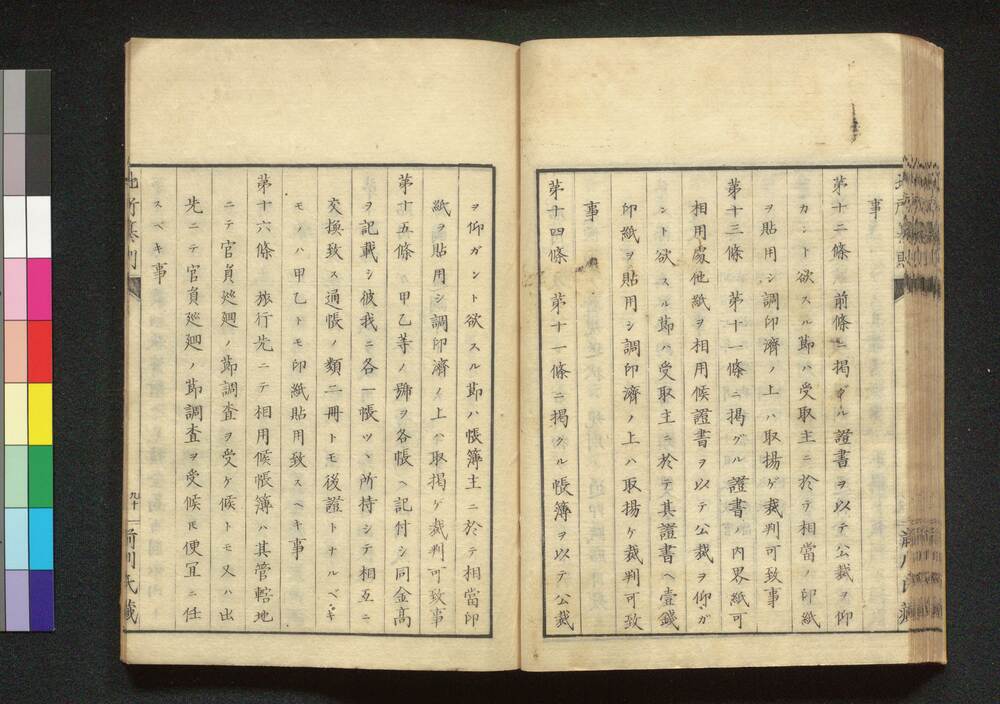 事
第十二條 前條ニ掲グル證書ヲ以テ公裁ヲ仰
カント欲スル節ハ受取主ニ於テ相當ノ印紙
ヲ貼用シ調印濟ノ上ハ取揚ゲ裁判可致事
第十三條 第十一條ニ掲グル證書ノ内界紙可
相用處他紙ヲ相用候證書ヲ以テ公裁ヲ仰ガ
ント欲スル節ハ受取主ニ於テ其證書ヘ壹錢
印紙ヲ貼用シ調印濟ノ上ハ取揚ケ裁判可致
事
第十四條 第十一條ニ掲クル帳簿ヲ以テ公裁
ヲ仰ガント欲スル節ハ帳簿主ニ於テ相當印
紙ヲ貼用シ調印濟ノ上ハ取掲ゲ裁判可致事
第十五條 甲乙等ノ號ヲ各帳ヘ記付シ同金高
ヲ記載シ彼我ニ各一帳ツヽ所持シテ相互ニ
交換致ス通帳ノ類二冊トモ後證トナルベキ
モノハ甲乙トモ印紙貼用致スヘキ事
第十六條 旅行先ニテ相用候帳簿ハ其管轄地
ニテ官員廵廻ノ節調査ヲ受ケ候トモ又ハ出
先ニテ官員廵廻ノ節調査ヲ受候氏便冝ニ任
スベキ事
九十
前川氏藏